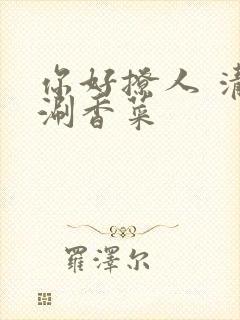 你好撩人
涮香菜
羅澤尔